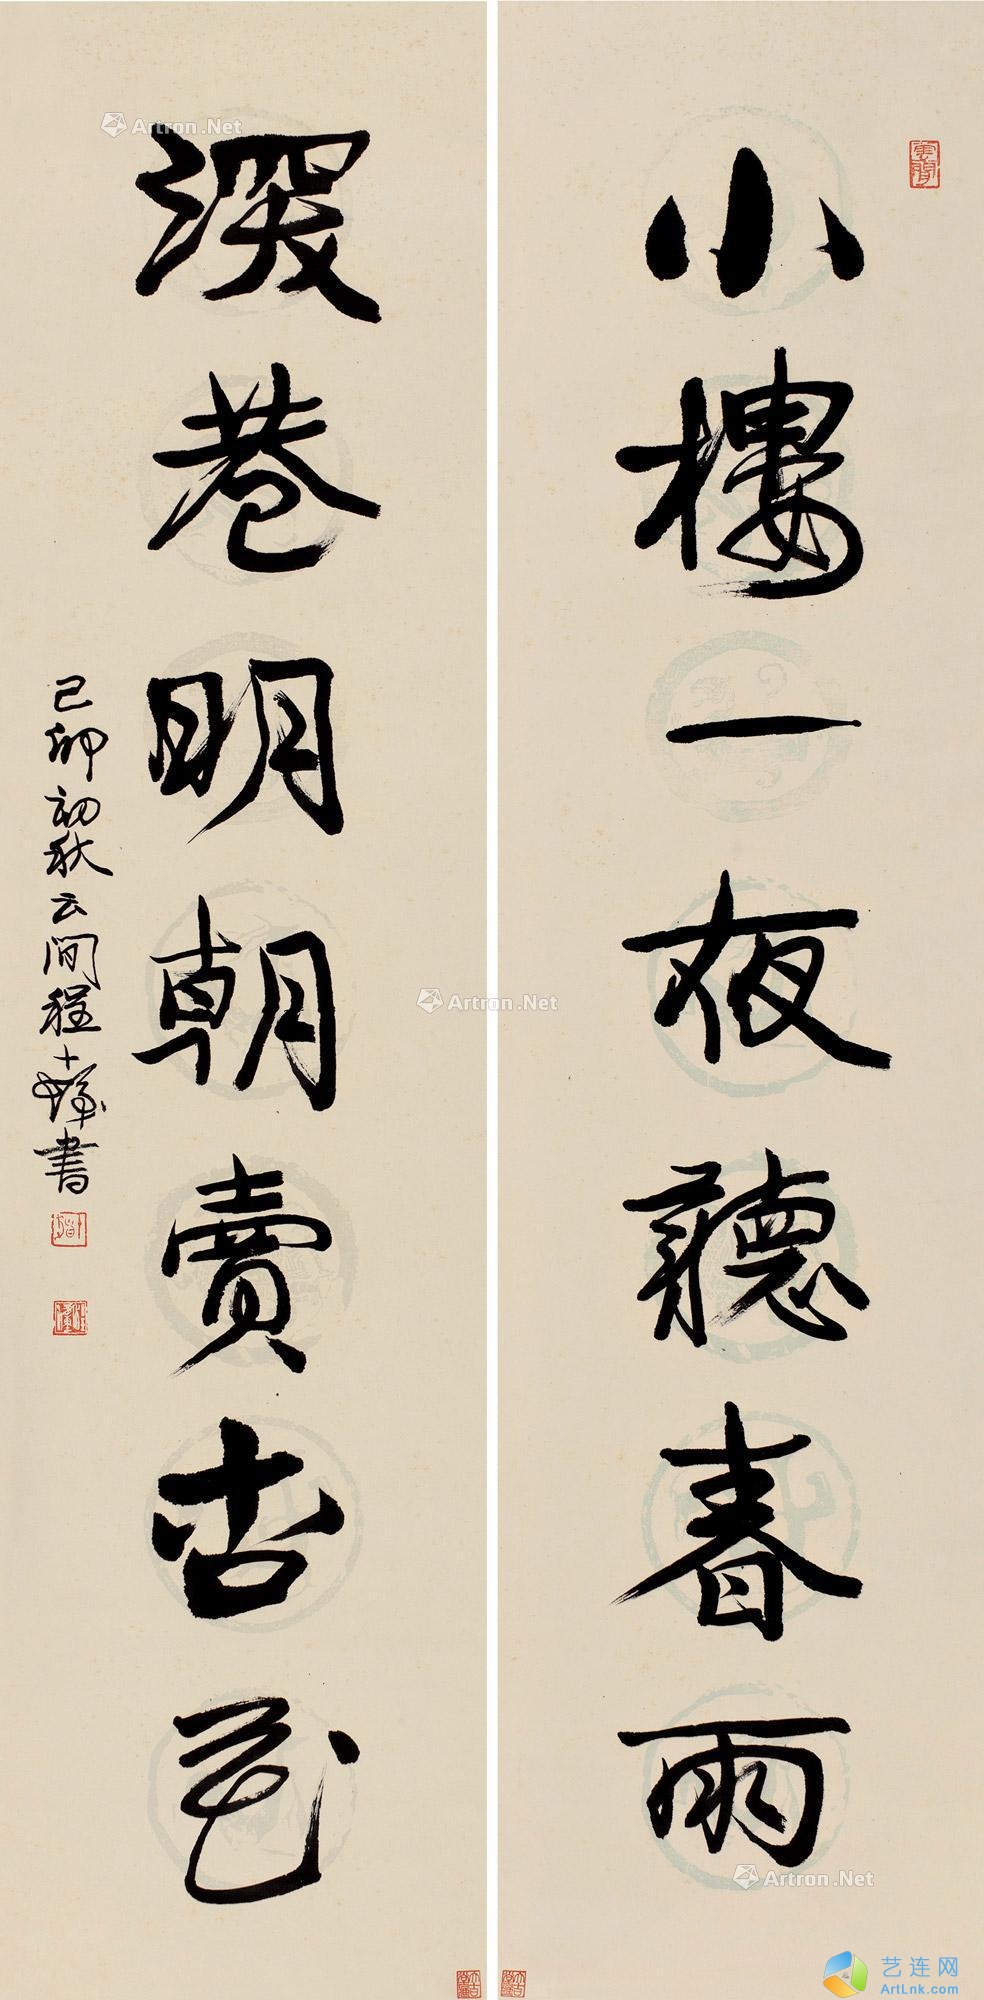 雲間
小樓一夜聽春雨
深巷明朝賣杏花
己卯初秋云间程十髮書
Artron.Net
Artron.Net
Artron.Net
艺连网
ArtLnk.com